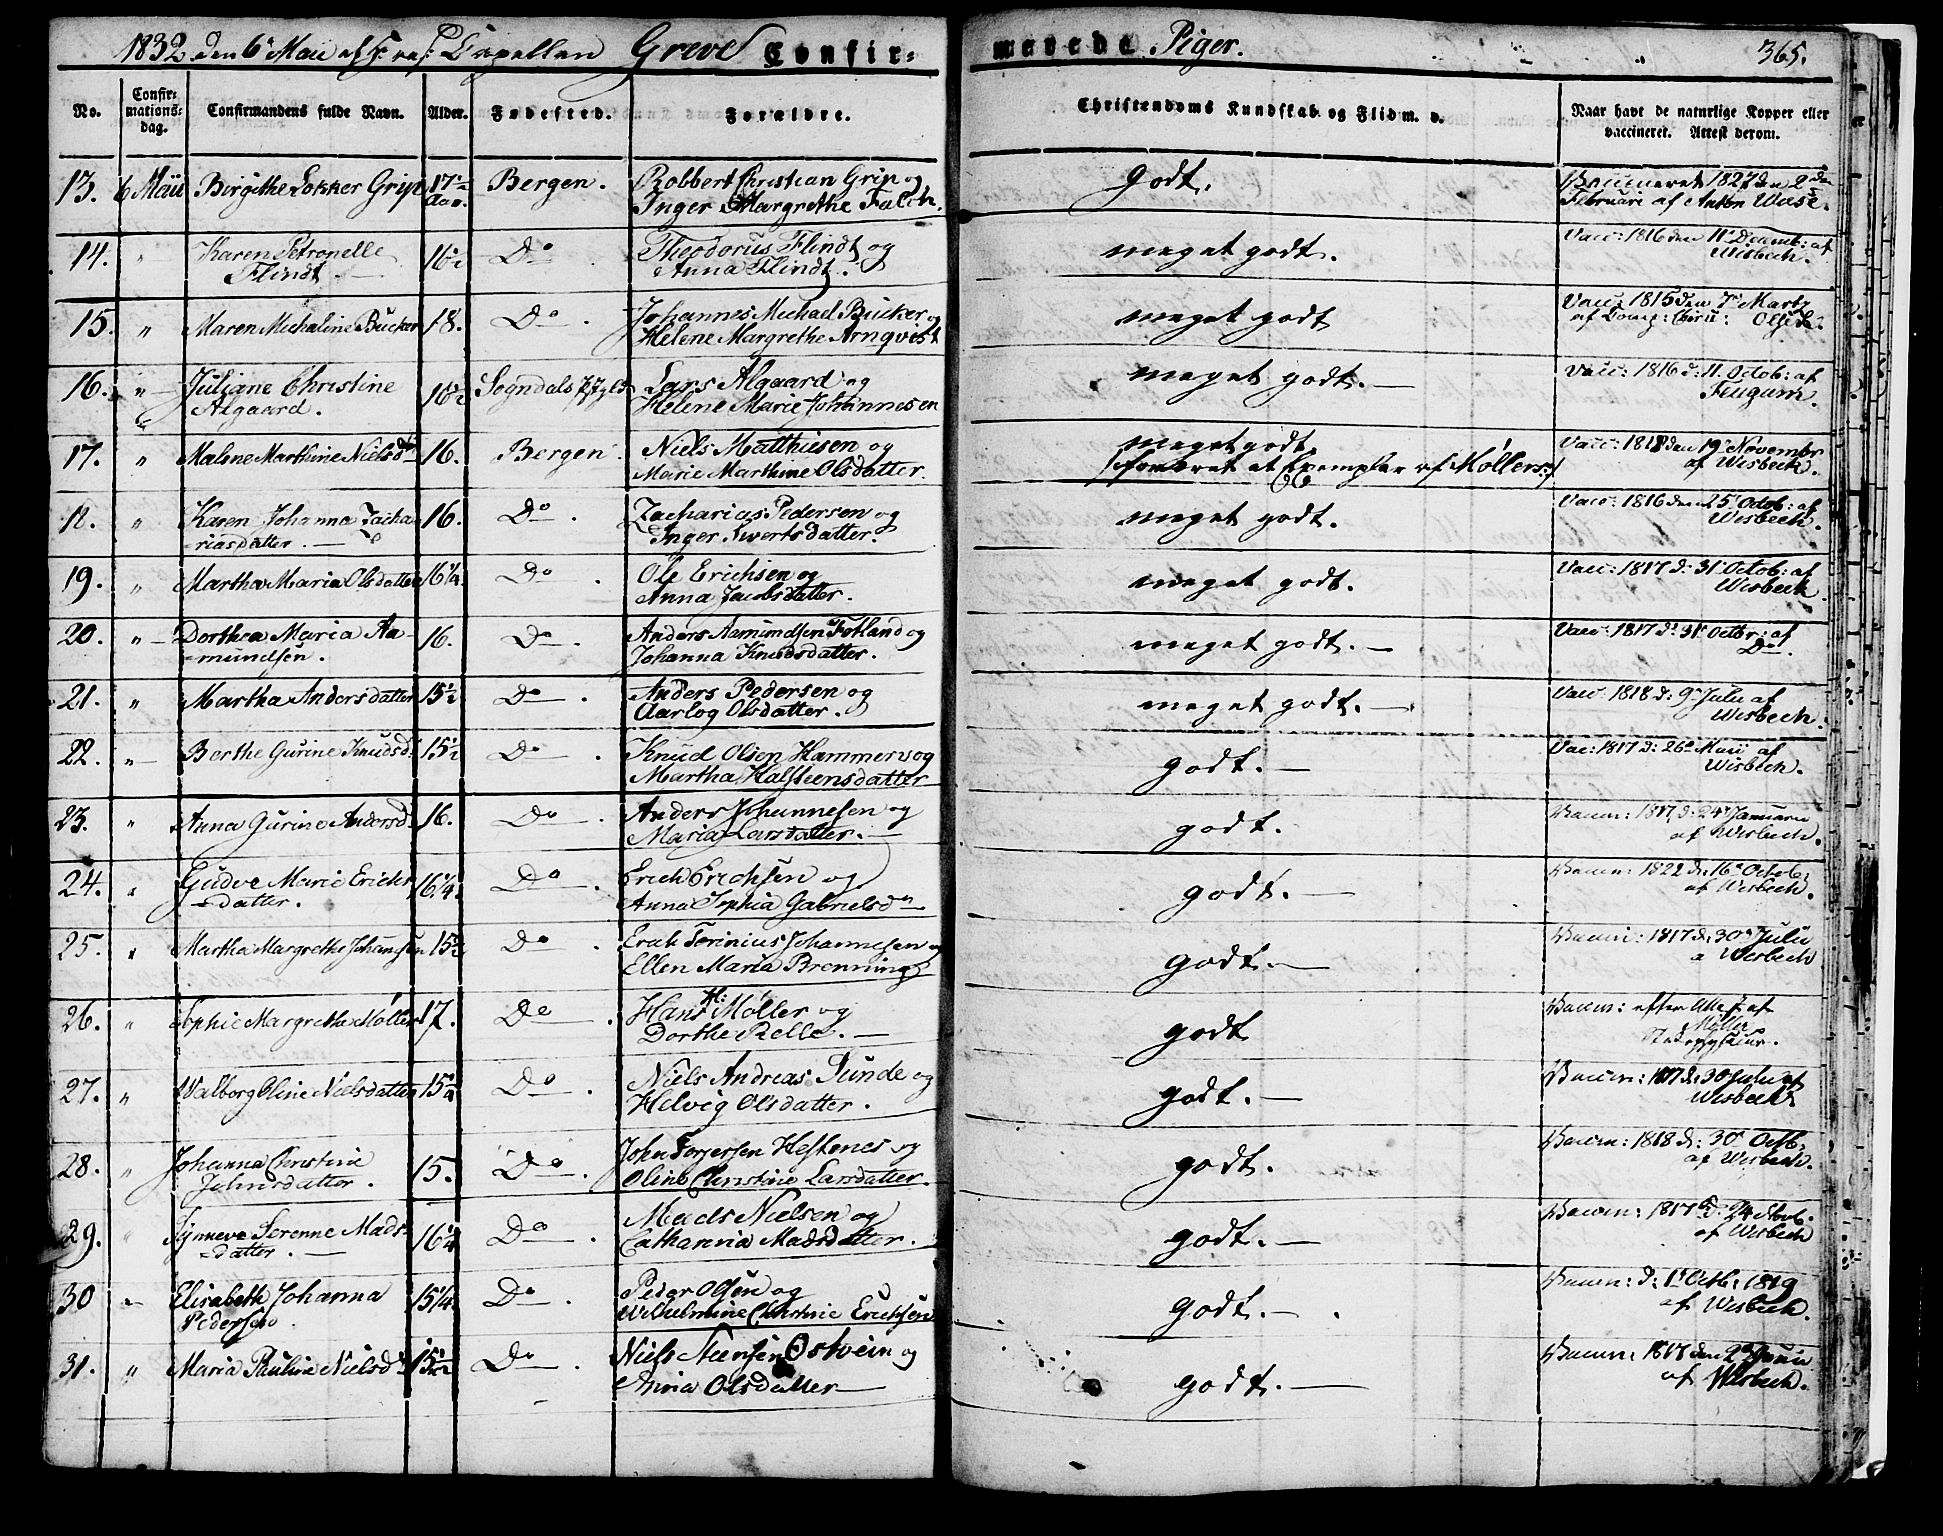 1832 den 6te Maii af Capellan Greve Confir=
merede Piger. 365.
No. Confirmations-dag. Confirmandens fulde Navn. Alder. Fødested. Forældre. Christendoms Kundskab og Flid m. v. Naar havt de naturlige Kopper eller vaccineret. Attest derom.
13. 6 Maii Birgithe Lokker Grip 17 Aar. Bergen. Robbert Christian Grip og
Inger Margrethe Falch. godt. Vaccineret 1827 den 2den
Februari af Anton Wiese.
14. " Karen Petronelle
Flindt 16½ Do Theodorus Flindt og
Anna Flindt. meget godt. Vacc: 1816 den 11 Decemb: af
Wisbech.
15. " Maren Michaline Bücker 18. Do. Johannes Michael Bücker og
Helene Margrethe Arnqvist meget godt Vacc: 1815 den 7 Martz
af Comp: Chiru:
16. " Juliane Christine
Algaard. 16½ Sogndals Lars Algaard og
Helene Marie Johannesen meget godt. Vacc: 1816 d: 11 Octob: af
17. " Malene Marthine Nielsd. 16. Bergen. Niels Matthiesen og
Marie Marthine Olsdatter. meget godt
foræret et Exemplar af Møllers Vacc: 1818 den 19 Novembr
af Wisbech.
18. " Karen Johanna Zacha-
riasdatter. 16. Do. Zacharias Pedersen og
Inger Iwertsdatter. meget godt. Vacc: 1816 den 25 Octob: af
Wisbech.
19. " Martha Maria Olsdatter 16¼. Do. Ole Erichsen og
Anna Jacobsdatter. meget godt. Vacc: 1817 d: 31 Octob: af
Wisbech
20. " Dorthea Maria Aa-
mundsen. 16. Do. Anders Aamundsen Fotland og
Johanna Knudsdatter. meget godt. Vacc: 1817 d: 31 Octbr: af
Do.
21. " Martha Andersdatter 15½ Do. Anders Pedersen og
Aarlog Olsdatter. meget godt. Vacc: 1818 d: 9 Julii af
Wisbech.
22. " Berthe Gurine Knudsd. 15½ Do. Knud Olsen Hammer og
Martha Halsteensdatter godt. Vac: 1817 d: 26 Maii af
Wisbech.
23. " Anna Gurine Andersd. 16. Do. Anders Johannesen og
Maria Larsdatter. godt. Vaccin: 1817 d: 24 Januarii
af Wisbech.
24. " Gudve Marie Erichs-
datter. 16¼. Do. Erich Erichsen og
Anna Sophia Gabrielsd godt. Vaccin: 1822 d: 16 Octob:
af Wisbech.
25. " Martha Margrethe Johansen 15½ Do. Erich Johannesen og
Ellen Maria Brenning godt. Vaccin: 1817 d: 30 Julii
Wisbech
26. " Sophie Margretha Møller 17. Do. Hans H: Møller og
Dorthe Relle. godt Vaccin: efter Attest af
Møller
27. " Walborg Oline Nielsdatter 15¼ Do. Niels Andreas Sunde og
Helvig Olsdatter. godt. Vaccin: 1817 d: 30 Julii af
Wisbech
28. " Johanna Christine
Johnsdatter. 15. Do. John Torgersen Hestenes og
Oline Christine Larsdatter. godt. Vaccin: 1818 d: 30 Octb.
af Wisbech.
29. " Synneve Serenne Mads-
datter. 16¼ Do. Mads Nielsen og
Catharina Madsdatter. godt. Vaccin: 1817 d. 24
af Wisbech
30 " Elisabeth Johanna
Pedersen. 15¼. Do. Peder Olsen og
Wilhelmine Christine Erichsen godt. Vaccin: d: 1 Octb: 1819
af Wisbech.
31. " Maria Pauline Nielsd 15½ Do. Niels Østvein og
Anna Olsdatter godt. Vaccin: 1817 den 2 Junii
af Wisbech.